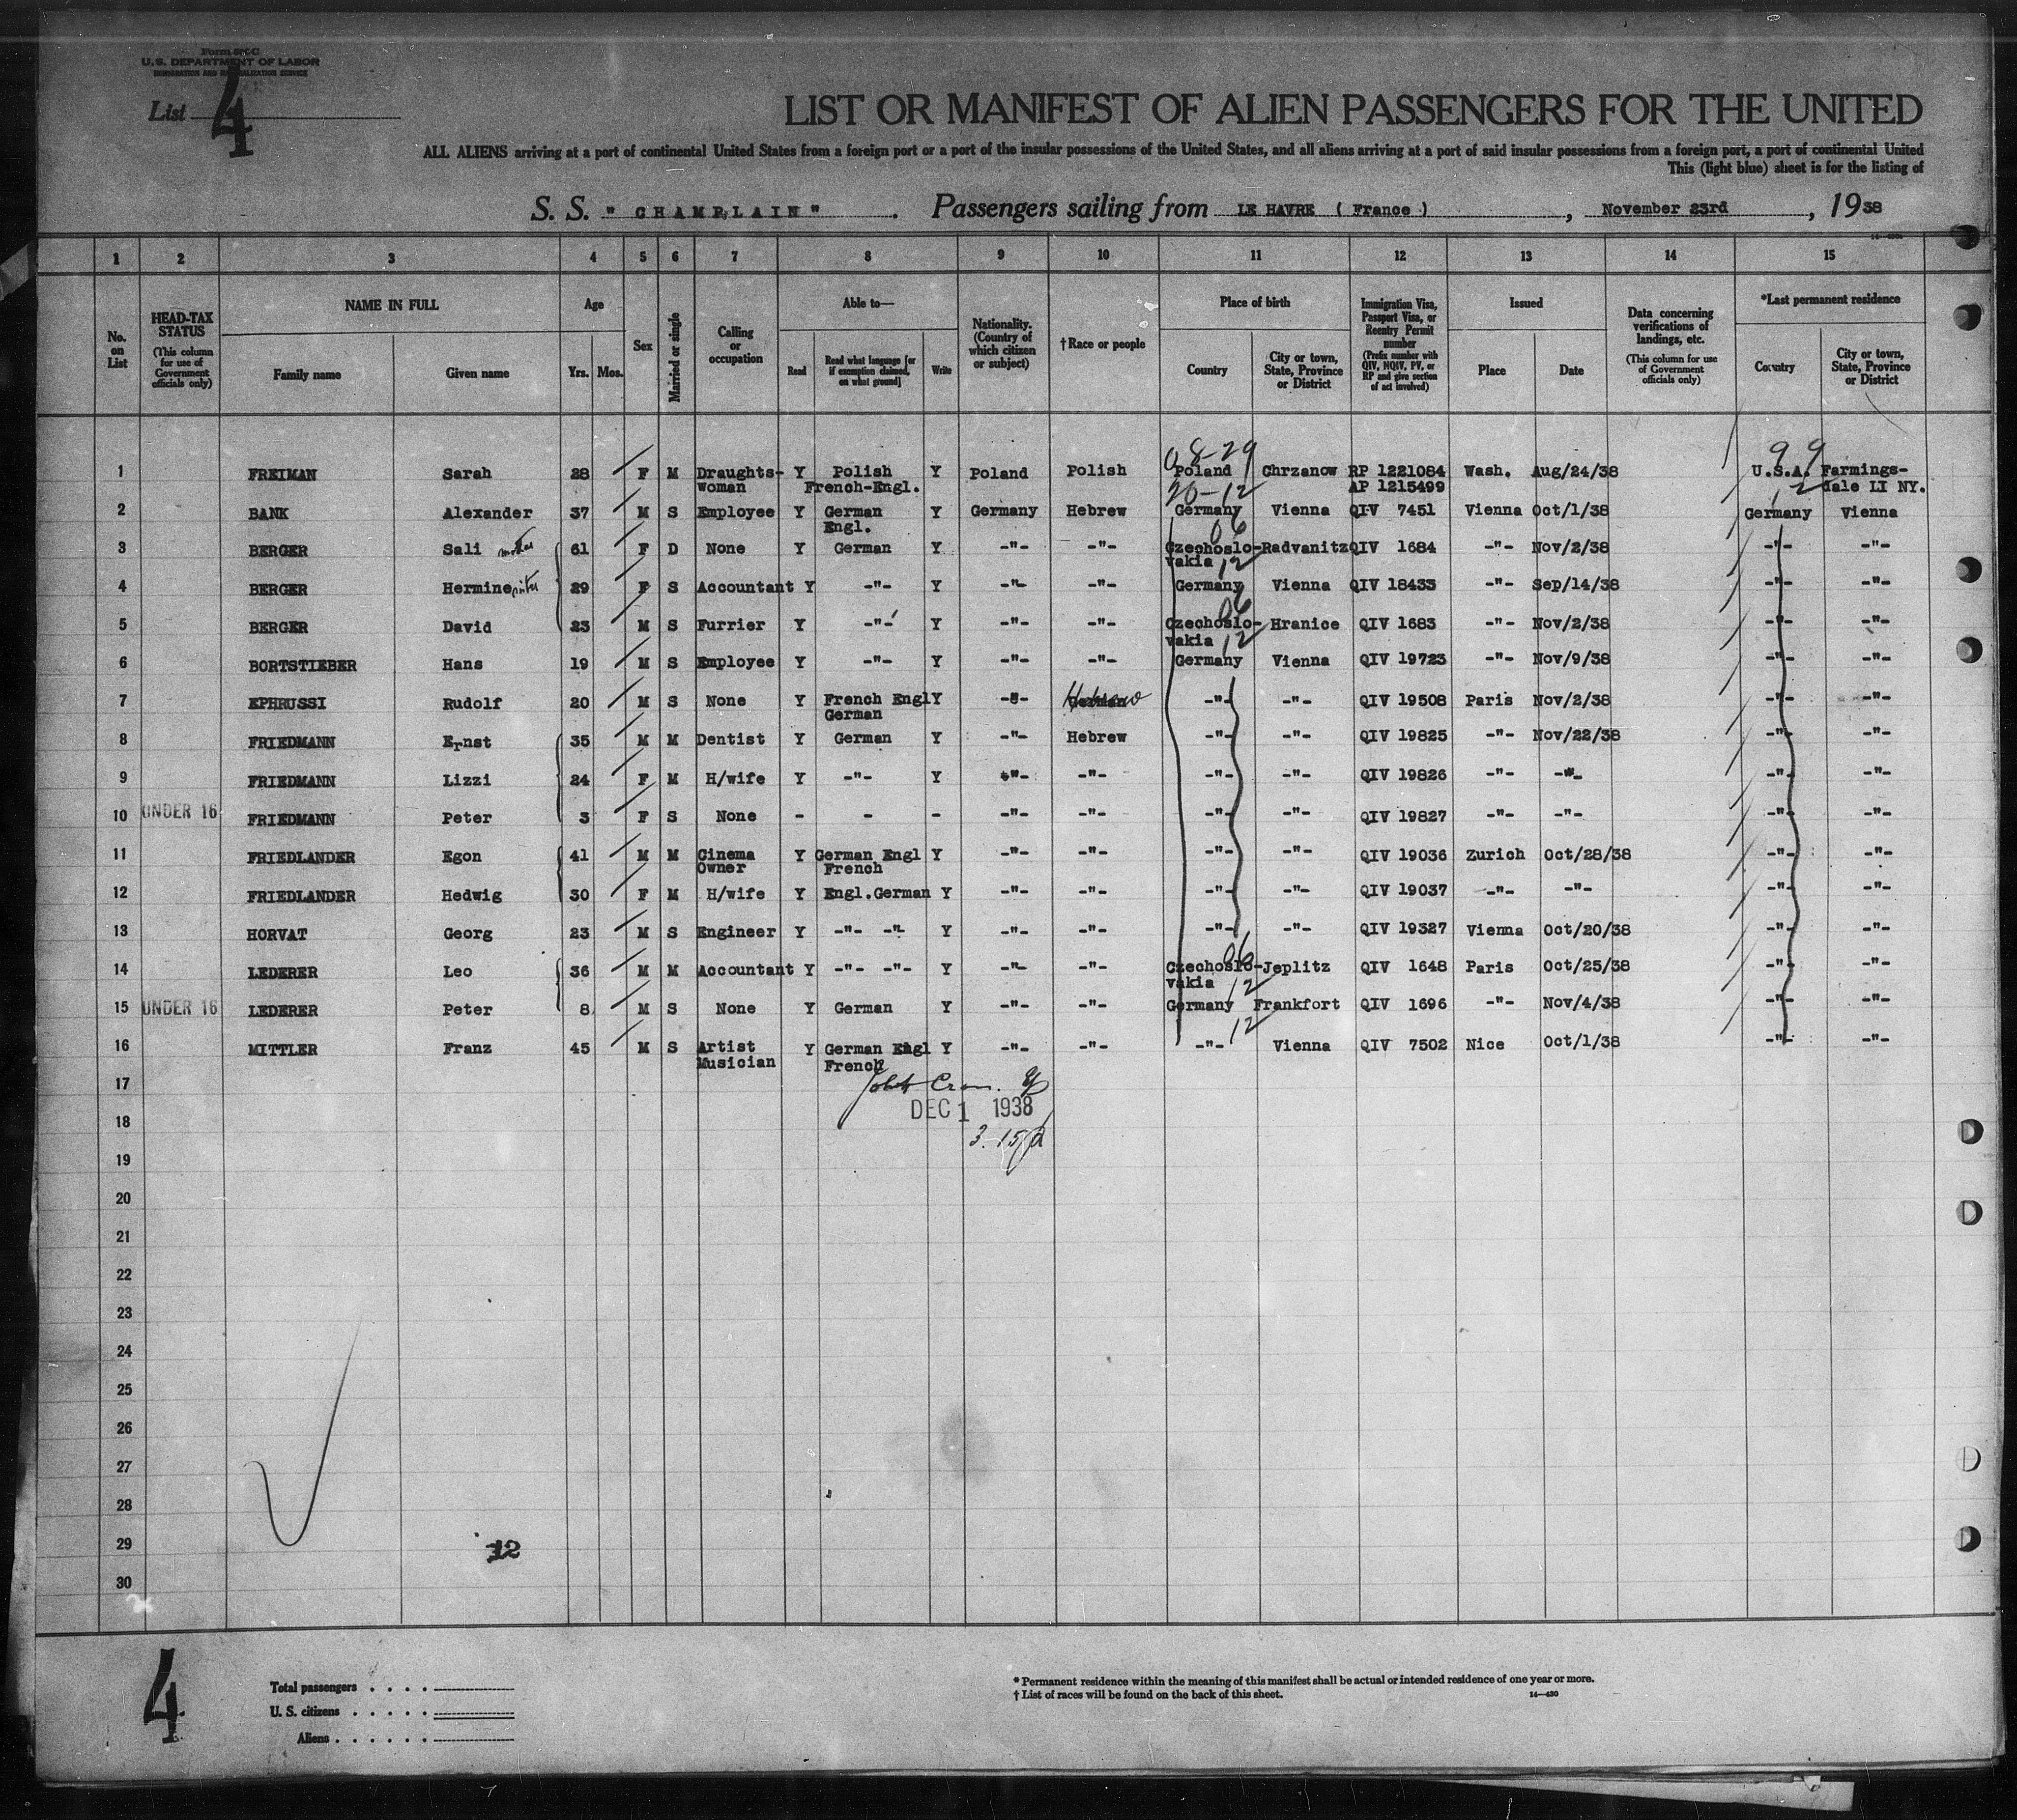 Form 500 C
U.S. DEPARTMENT OF LABOR
IMMIGRATION AND NATURALIZATION SERVICE
List 4
LIST OR MANIFEST OF ALIEN PASSENGERS FOR THE UNITED
ALL ALIENS arriving at a port of continental United States from a foreign port or a port of the insular possessions of the United States, and all aliens arriving at a port of said insular possessions from a foreign port, a port of continental United
This (light blue) sheet is for the listing of
S. S. "CHAMPLAIN". Passengers sailing from LE HAVRE ( France ), November 23rd, 1938
1 2 3 4 5 6 7 8 9 10 11 12 13 14 15
No. on List
HEAD-TAX STATUS
(This column for use of Government officials only)
NAME IN FULL
Family name Given name
Age
Yrs. Mos.
Sex
Married or single
Calling or occupation
Able to—
Read Read what language [or if exemption claimed, on what ground] Write
Nationality. (Country of which citizen or subject)
†Race or people
Place of birth
Country City or town, State, Province or District
Immigration Visa, Passport Visa, or Reentry Permit number
(Prefix number with QIV, NQIV, PV, or RP and give section of act involved)
Issued
Place Date
Data concerning verifications of landings, etc.
(This column for use of Government officials only)
*Last permanent residence
Country City or town, State, Province or District
08-29 99
1 FREIMAN Sarah 28 F M Draughts- Y Polish Y Poland Polish Poland Chrzanow RP 1221084 Wash. Aug/24/38 U.S.A. Farmings-
woman French-Engl. AP 1215499 dale LI NY.
20-12 12
2 BANK Alexander 37 M S Employee Y German Y Germany Hebrew Germany Vienna QIV 7451 Vienna Oct/1/38 Germany Vienna
Engl. 06
3 BERGER Sali mother 61 F D None Y German Y -"- -"- Czechoslo- Radvanitz QIV 1684 -"- Nov/2/38 -"- -"-
vakia 12
4 BERGER Hermine sister 29 F S Accountant Y -"- Y -"- -"- Germany Vienna QIV 18433 -"- Sep/14/38 -"- -"-
06
5 BERGER David 23 M S Furrier Y -"- Y -"- -"- Czechoslo- Hranice QIV 1683 -"- Nov/2/38 -"- -"-
vakia 12
6 BORTSTIEBER Hans 19 M S Employee Y -"- Y -"- -"- Germany Vienna QIV 19723 -"- Nov/9/38 -"- -"-
7 EPHRUSSI Rudolf 20 M S None Y French Engl Y -"- Hebrew -"- -"- QIV 19508 Paris Nov/2/38 -"- -"-
German
8 FRIEDMANN Ernst 35 M M Dentist Y German Y -"- Hebrew -"- -"- QIV 19825 -"- Nov/22/38 -"- -"-
9 FRIEDMANN Lizzi 24 F M H/wife Y -"- Y -"- -"- -"- -"- QIV 19826 -"- -"- -"- -"-
10 UNDER 16 FRIEDMANN Peter 3 F S None - - - -"- -"- -"- -"- QIV 19827 -"- -"- -"- -"-
11 FRIEDLANDER Egon 41 M M Cinema Y German Engl Y -"- -"- -"- -"- QIV 19036 Zurich Oct/28/38 -"- -"-
Owner French
12 FRIEDLANDER Hedwig 30 F M H/wife Y Engl.German Y -"- -"- -"- -"- QIV 19037 -"- -"- -"- -"-
13 HORVAT Georg 23 M S Engineer Y -"- -"- Y -"- -"- -"- -"- QIV 19327 Vienna Oct/20/38 -"- -"-
06
14 LEDERER Leo 36 M M Accountant Y -"- -"- Y -"- -"- Czechoslo- Jeplitz QIV 1648 Paris Oct/25/38 -"- -"-
vakia 12
15 UNDER 16 LEDERER Peter 8 M S None Y German Y -"- -"- Germany Frankfort QIV 1696 -"- Nov/4/38 -"- -"-
12
16 MITTLER Franz 45 M S Artist Y German Engl Y -"- -"- -"- Vienna QIV 7502 Nice Oct/1/38 -"- -"-
Musician French
17
DEC 1 1938
18
3-15
19
20
21
22
23
24
25
26
27
28
29 12
30
4
Total passengers . . . .
U. S. citizens . . . . .
Aliens . . . . . .
* Permanent residence within the meaning of this manifest shall be actual or intended residence of one year or more.
† List of races will be found on the back of this sheet. 14—430